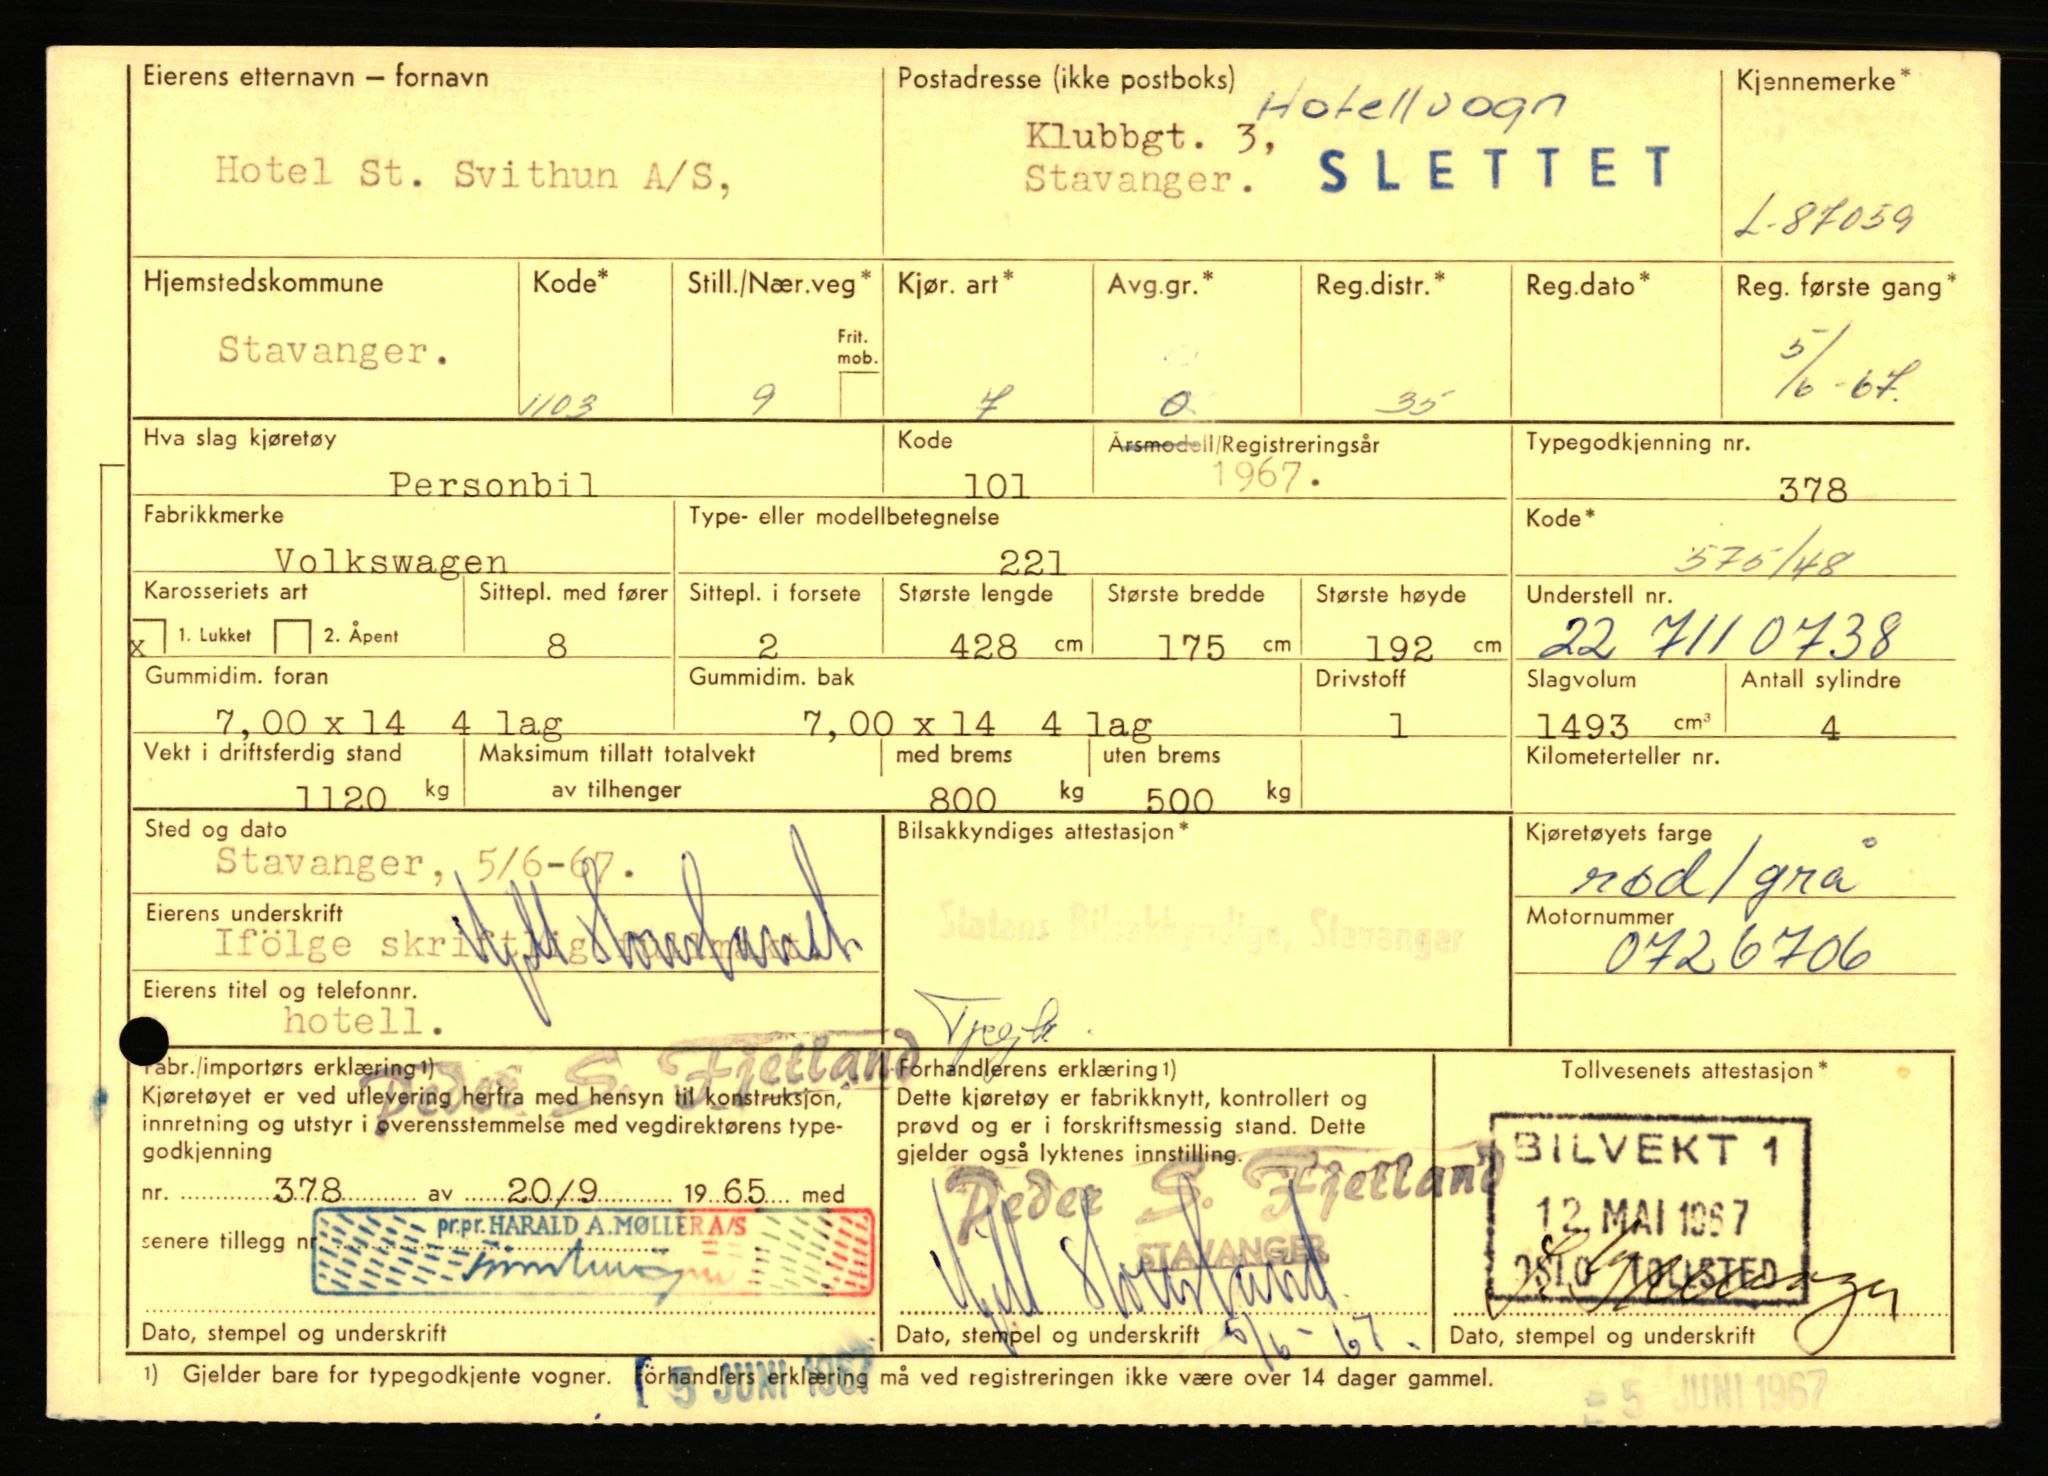 Eierens etternavn – fornavn
Hotel St. Svithun A/S,
Postadresse (ikke postboks)
Hotellvogn
Klubbgt. 3,
Stavanger.
SLETTET
Kjennemerke*
L-87059
Hjemstedskommune
Stavanger.
Kode*
1103
Still./Nær.veg*
Frit.
mob.
9
Kjør. art*
7
Avg.gr.*
0
Reg.distr.*
35
Reg.dato*
Reg. første gang*
5/6-67.
Hva slag kjøretøy
Personbil
Kode
101
Årsmodell/Registreringsår
1967.
Typegodkjenning nr.
378
Fabrikkmerke
Volkswagen
Type- eller modellbetegnelse
221
Kode*
575/48
Karosseriets art
x 1. Lukket 2. Åpent
Sittepl. med fører
8
Sittepl. i forsete
2
Største lengde
428 cm
Største bredde
175 cm
Største høyde
192 cm
Understell nr.
22 711 0738
Gummidim. foran
7,00 x 14 4 lag
Gummidim. bak
7,00 x 14 4 lag
Drivstoff
1
Slagvolum
1493 cm³
Antall sylindre
4
Vekt i driftsferdig stand
1120 kg
Maksimum tillatt totalvekt
av tilhenger
med brems
800 kg
uten brems
500 kg
Kilometerteller nr.
Sted og dato
Stavanger, 5/6-67.
Eierens underskrift
Ifölge skriftlig fullmakt.
Eierens titel og telefonnr.
hotell.
Bilsakkyndiges attestasjon*
Statens Bilsakkyndige, Stavanger
Kjøretøyets farge
rød/grå
Motornummer
0726706
Fabr./importørs erklæring1)
Peder S. Fjetland
Kjøretøyet er ved uflevering herfra med hensyn til konstruksjon,
innretning og utstyr i overensstemmelse med vegdirektørens type-
godkjenning
nr. 378 av 20/9 1965 med
senere tillegg nr
pr.pr. HARALD A. MØLLER A/S
Dato, stempel og underskrift
Forhandlerens erklæring1)
Dette kjøretøy er fabrikknytt, kontrollert og
prøvd og er i forskriftsmessig stand. Dette
gjelder også lyktenes innstilling.
Peder S. Fjetland
STAVANGER
Dato, stempel og underskrift 5/6-67.
Tollvesenets attestasjon*
BILVEKT 1
12 MAI 1967
OSLO TOLLSTED
Dato, stempel og underskrift
1) Gjelder bare for typegodkjente vogner. Forhandlers erklæring må ved registreringen ikke være over 14 dager gammel.
5 JUNI 1967
- 5 JUNI 1967